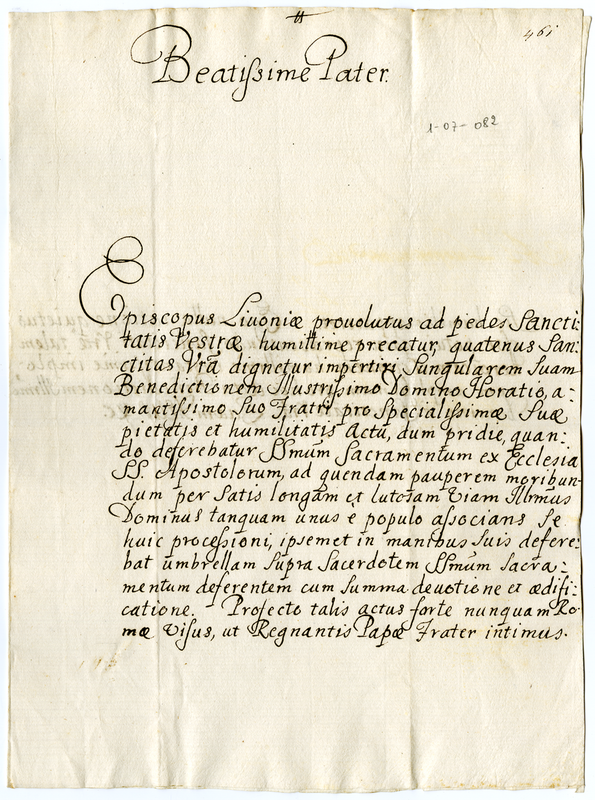 461
Beatißime Pater.
1-07-082
Episcopus Livoniæ provolutus ad pedes Sancti:
tatis Vestræ humillime precatur, quatenus San:
ctitas Vrã dignetur impertiri Singularem Suam
Benedictionem Illustrißimo Domino Horatio, a-
mantissimo Suo Fratri pro Specialißimæ Suæ
pietatis et humilitatis Actu, dum pridie, quan:
do deferebatur SSmum Sacramentum ex Ecclesia
SS. Apostolorum, ad quendam pauperem moribun-
dum per Satis longam et lutosam Viam Illrmus
Dominus tanquam unus è populo associans Se
huic proceßioni, ipsemet in manibus suis defere:
bat umbrellam supra Sacerdotem SSmum Sacra-
mentum deferentem cum Summa devotione et ædifi:
catione. Profecto talis actus forte nunquam Ro-
mæ Visus, ut Regnantis Papæ Frater intimus.